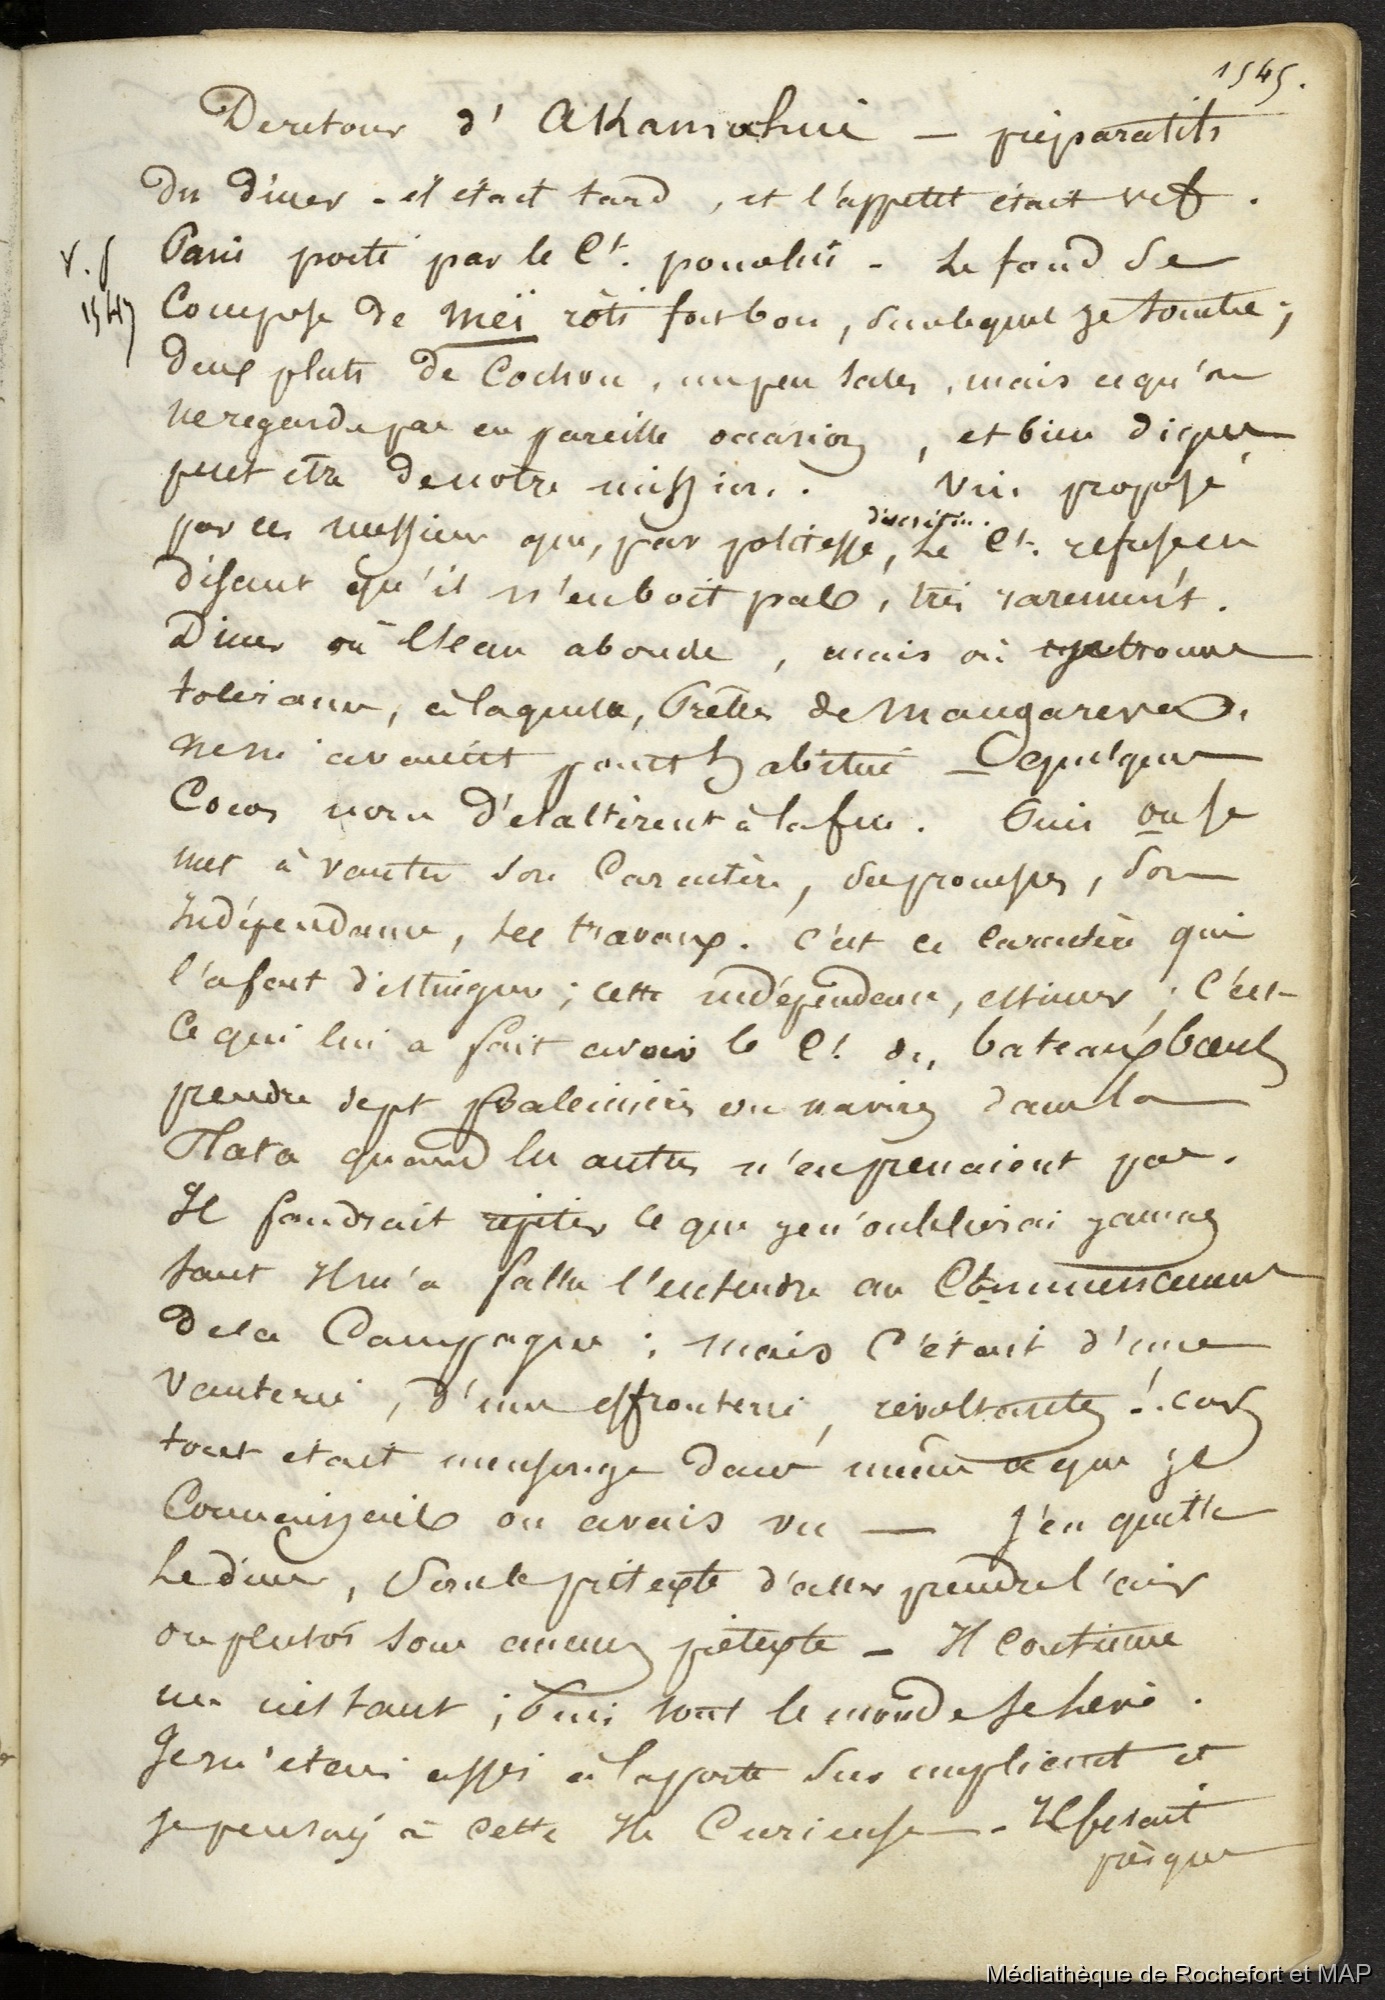 1545.
De retour d'Akamahui — préparatifs
du diner - il était tard, et l'appetit était vif.
v. f 1547
Paris porté par le Ct. - Le fond se
Compose de meï rôti fort bon, sur lequel je tombe;
deux plats de Cochon, un peu sales, mais ce qu'on
ne regarde pas en pareille occasion, et bien dignes
peut etre de notre mission. Vin proposé
par ces messieurs que, par politesse, discrétion. Le Ct. refuse en
disant qu'il n'en boit pas, très rarement.
Diner où l'eau abonde, mais où règne une
tolérance, à laquelle, Prêtres de Mangareva,
ne m'avaient point habitué — quelques
Cocos nous désaltèrent à la fin. Puis on se
met à vanter son Caractère, ses prouesses, son
indépendance, ses travaux. C'est ce caractère qui
l'a fait distinguer; cette indépendance, estimer; C'est
Ce qui lui a fait avoir le Ct. des bateaux boeufs
prendre sept baleiniers ou navires dans la
Plata quand les autres n'en prenaient pas.
Il faudrait répéter ce que je n'oublierai jamais
tant il m'a fallu l'entendre au Commencement
de la Campagne; mais C'était d'une
vanterie, d'une effronterie, révoltantes! car
tout était mensonge dans même ce que je
Connaissais ou avais vu — J'en quitte
Le diner, sous le prétexte d'aller prendre l'air
ou plutôt sous aucun prétexte - Il continue
un instant; Puis tout le monde se lève.
Je m'étais assis à la porte sur un pliant et
je pensais à cette Ile Curieuse - Il fesait
presque